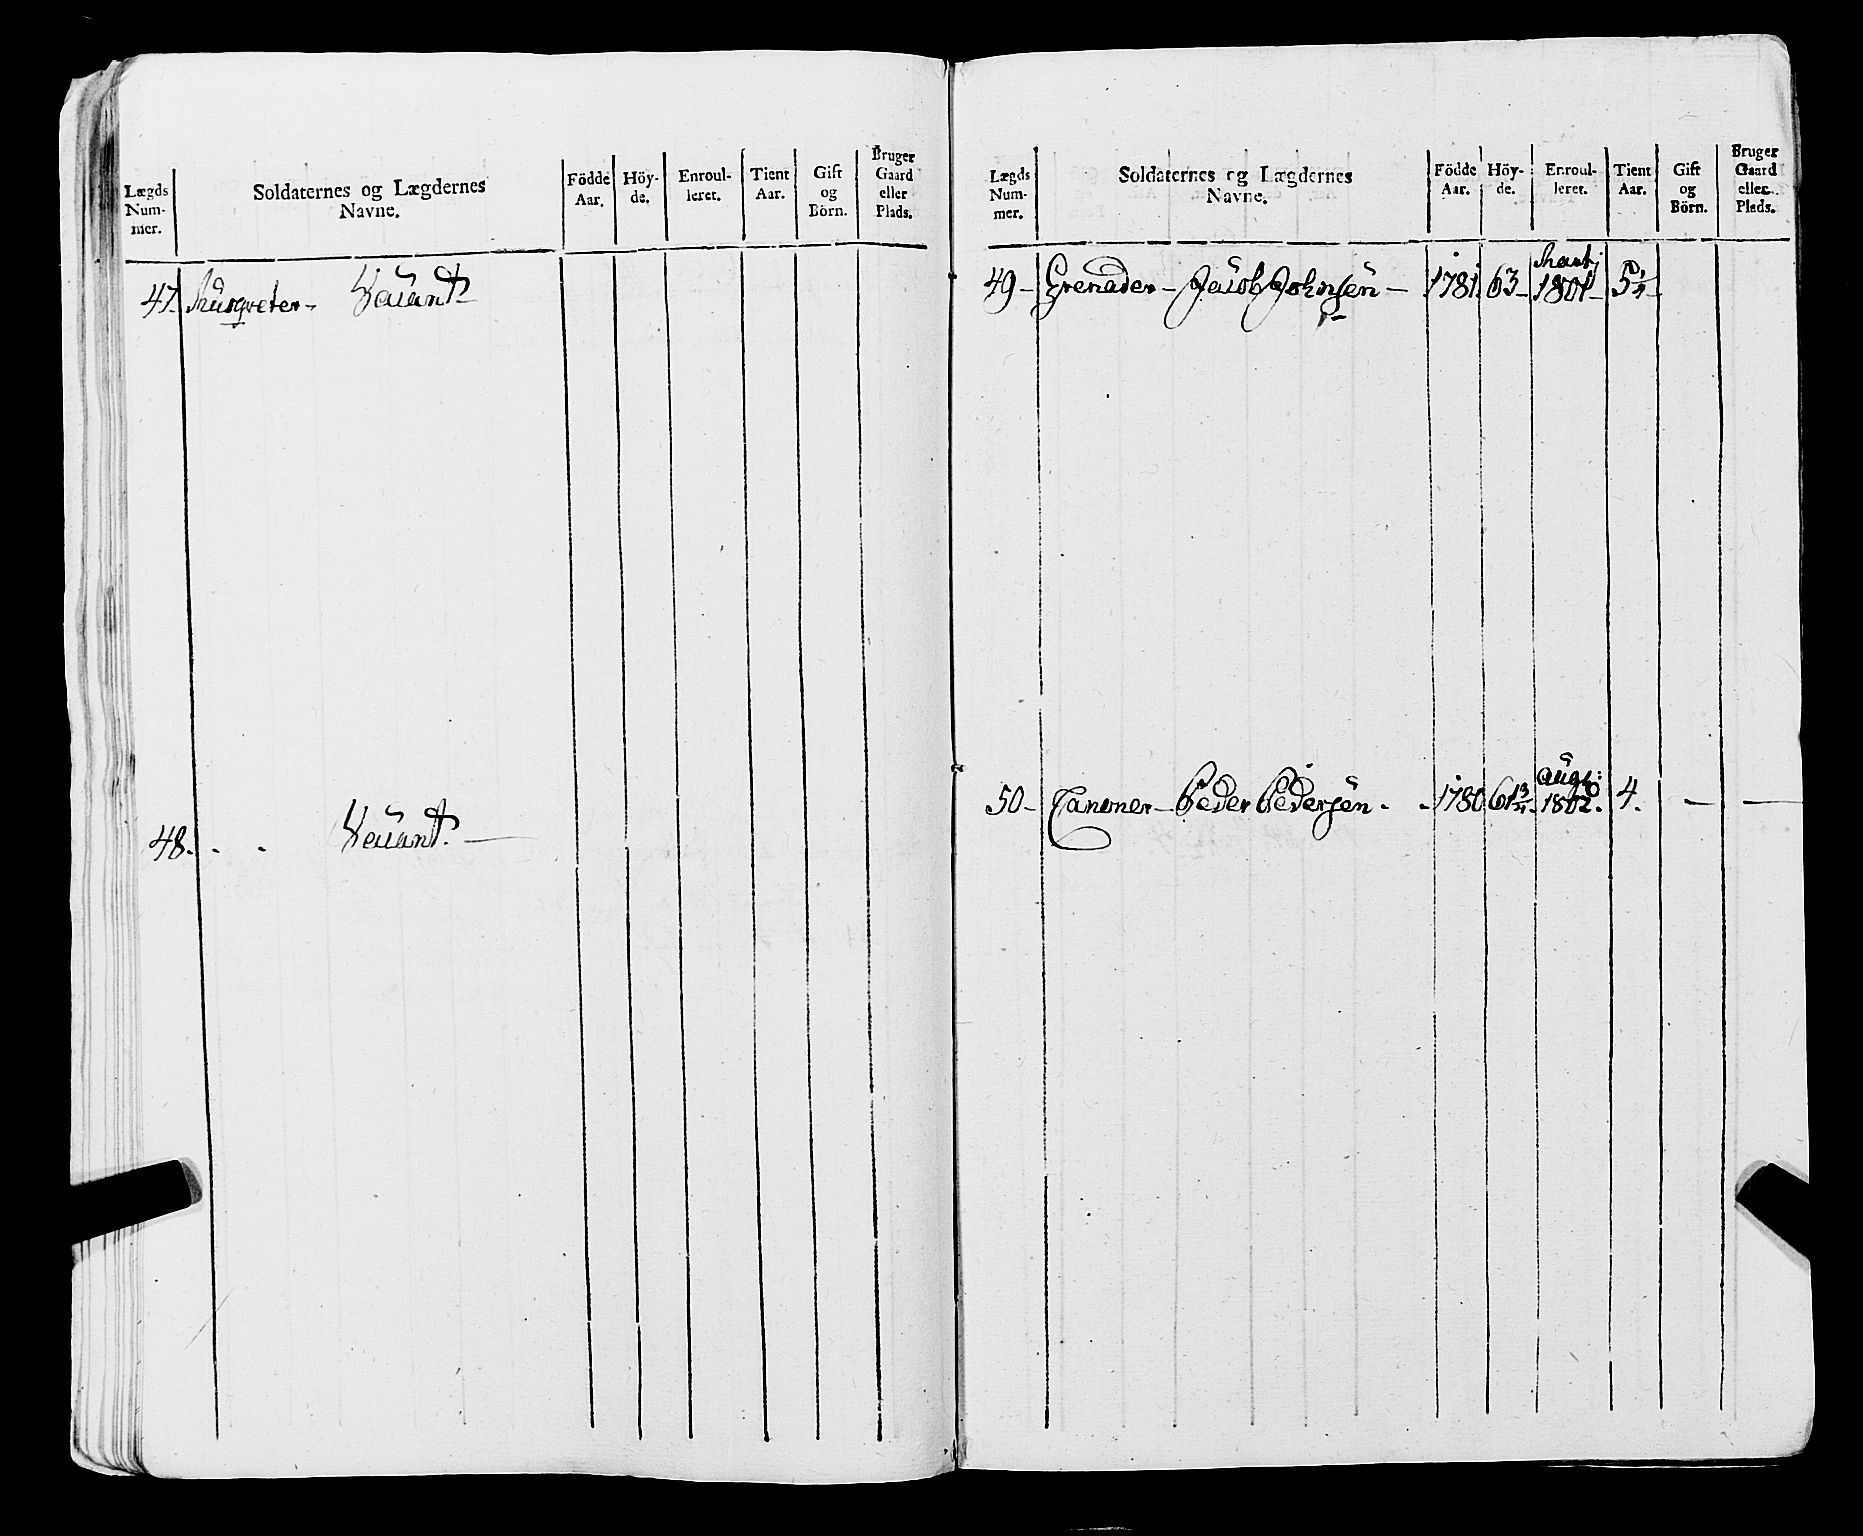 Lægds Num- mer.
Soldaternes og Lægdernes Navne.
Födde Aar.
Höy- de.
Enroul- leret.
Tient Aar.
Gift og Börn.
Bruger Gaard eller Plads.
47. Musqveter - Vacant -
48. . . Vacant. -
Lægds Num- mer.
Soldaternes og Lægdernes Navne.
Födde Aar.
Höy- de.
Enroul- leret.
Tient Aar.
Gift og Börn.
Bruger Gaard eller Plads.
49 - Grenader - Jacob Johnsen - 1781. 63 - Martj 1801 - 5 1/4 -
50 - Canoner - Peder Pedersen. - 1780 61 3/4. Augt: 1802. 4. - -